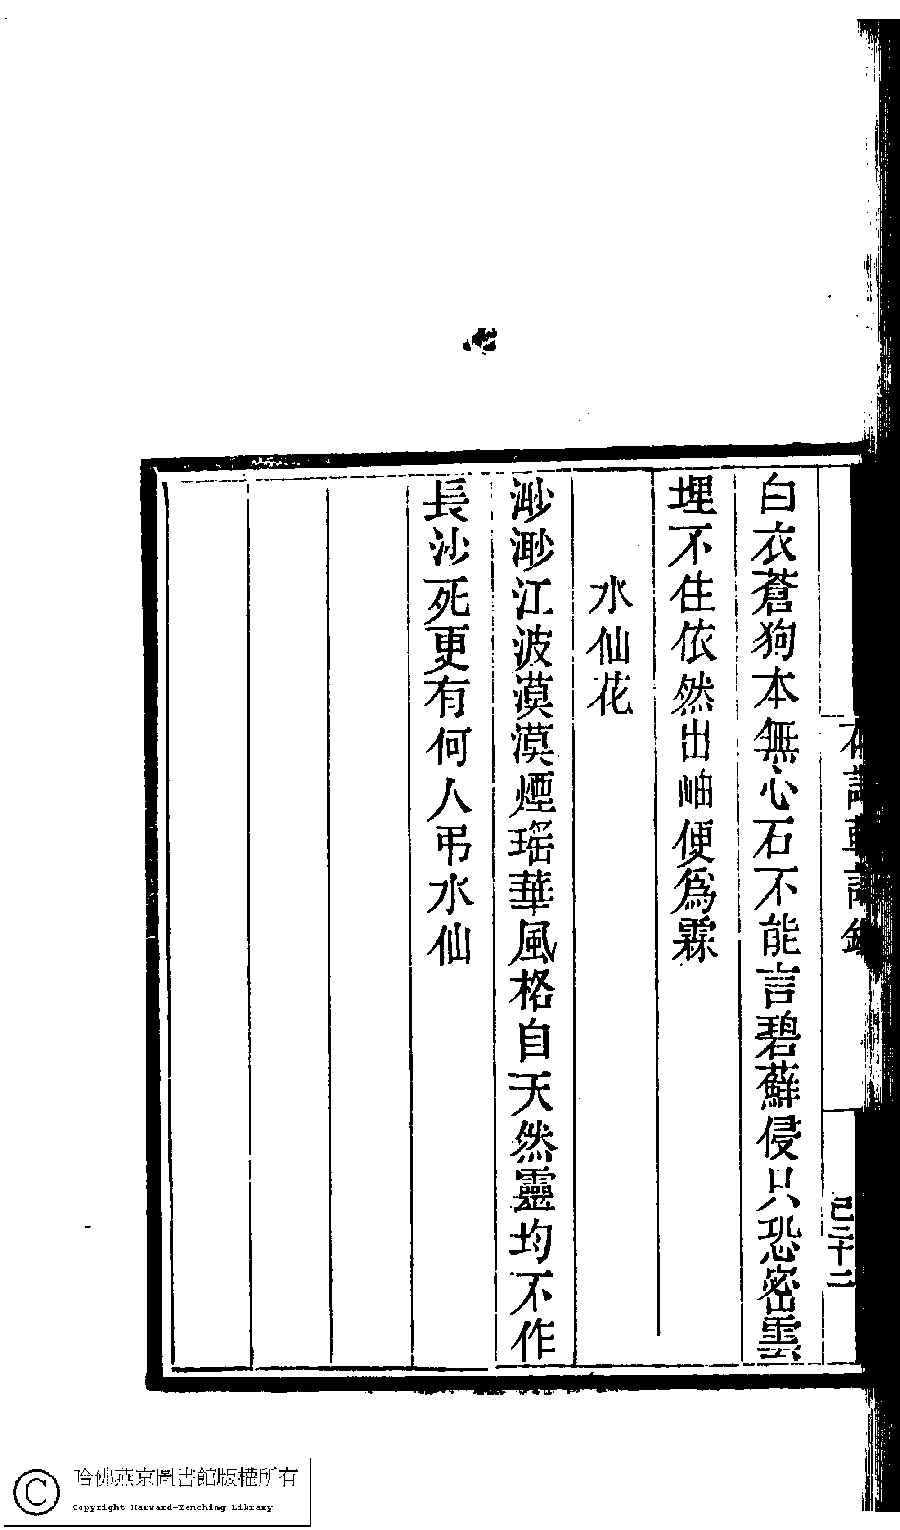 白衣蒼狗本無心石不能言碧蘚侵只恐密雲
埋不住依然出岫便爲霖
水仙花
渺渺江波漠漠煙瑶華風格自天然靈均不作
長沙死更有何人弔水仙
己三十二
哈佛燕京圖書館版權所有
Copyright Harvard-Yenching Library